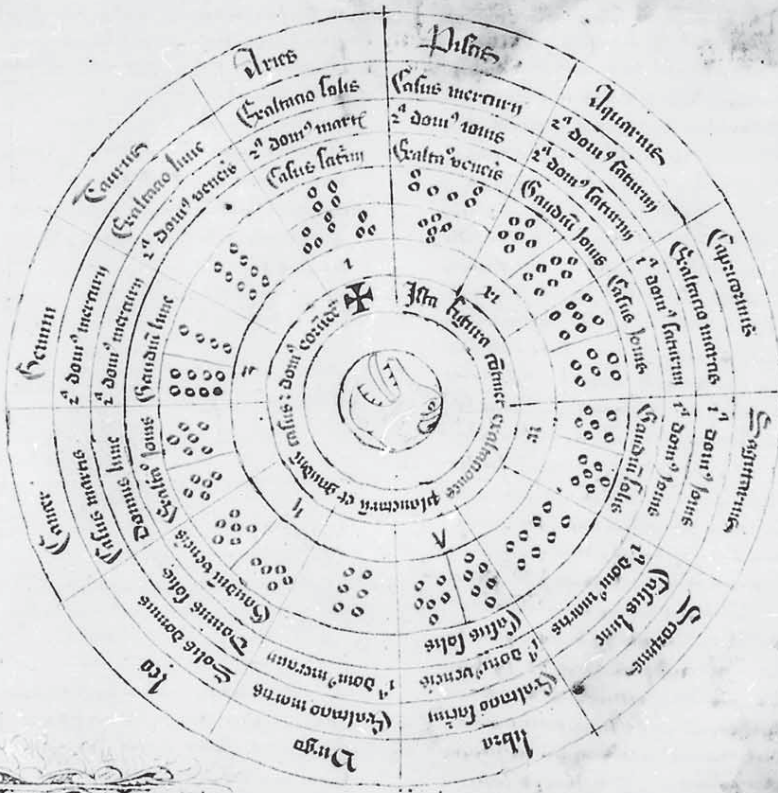 Aries
Exaltacio solis
2ª domꝰ mart
Casus saturni
Piscis
Casus mercurij
2ª domꝰ iouis
Exaltaº veneris
Aquarius
2ª domꝰ saturni
2ª domꝰ saturni
Gaudiũ Jouis
Capricornus
Exaltacio martis
1ª domꝰ saturni
Casus Jouis
Sagittarius
1ª domꝰ Jouis
1ª domꝰ Jouis
Gaudiũ solis
Scorpius
Casus lune
1ª domꝰ martis
libra
Exaltacio saturni
1ª domꝰ veneris
Casus solis
Virgo
Exaltacio martis
1ª domꝰ mercurij
leo
Solis domus
Domus solis
Gaudiũ veneris
Cancer
Casus martis
Domus lune
Exaltaº Jouis
Gemini
2ª domꝰ mercurij
2ª domꝰ mercurij
Gaudiũ lune
Taurus
Exaltacio lune
2ª domꝰ veneris
Ista figura exaltationes planetarũ et gaudiũ casus : domꝰ